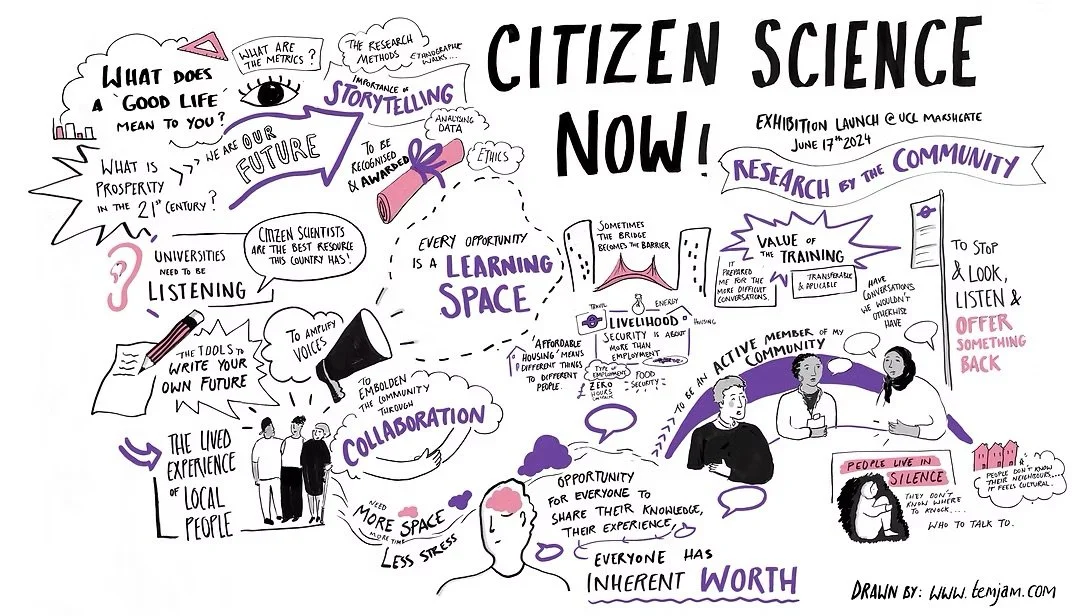 CITIZEN SCIENCE
NOW!
EXHIBITION LAUNCH @ UCL MARSHGATE
JUNE 17th 2024
RESEARCH BY THE COMMUNITY
WHAT DOES
A 'GOOD LIFE'
MEAN TO YOU?
WHAT ARE
THE METRICS?
THE RESEARCH
METHODS
ETHNOGRAPHIC
WALKS...
IMPORTANCE OF
STORYTELLING
WE ARE OUR
FUTURE
WHAT IS
PROSPERITY
IN THE 21st CENTURY?
TO BE
RECOGNISED
& AWARDED
ANALYSING
DATA
ETHICS
UNIVERSITIES
NEED TO BE
LISTENING
CITIZEN SCIENTISTS
ARE THE BEST RESOURCE
THIS COUNTRY HAS!
EVERY OPPORTUNITY
IS A LEARNING
SPACE
SOMETIMES
THE BRIDGE
BECOMES THE BARRIER
VALUE OF
THE TRAINING
IT
PREPARED
ME FOR THE
MORE DIFFICULT
CONVERSATIONS.
TRANSFERABLE
& APLICABLE
HAVE
CONVERSATIONS
WE WOULDN'T
OTHERWISE
HAVE
TO STOP
& LOOK,
LISTEN &
OFFER
SOMETHING
BACK
THE TOOLS TO
WRITE YOUR
OWN FUTURE
TO AMPLIFY
VOICES
TO
EMBOLDEN
THE COMMUNITY
THROUGH
COLLABORATION
TRAVEL
ENERGY
HOUSING
LIVELIHOOD
SECURITY IS ABOUT
MORE THAN
EMPLOYMENT
TYPE OF
EMPLOYMENT
ZERO
HOURS
FOOD
SECURITY
'AFFORDABLE
HOUSING' MEANS
DIFFERENT THINGS
TO DIFFERENT
PEOPLE.
TO BE AN ACTIVE MEMBER OF MY
COMMUNITY
THE LIVED
EXPERIENCE
OF LOCAL
PEOPLE
NEED
MORE SPACE
MORE TIME
LESS STRESS
OPPORTUNITY
FOR EVERYONE TO
SHARE THEIR KNOWLEDGE,
THEIR EXPERIENCE,
EVERYONE HAS
INHERENT WORTH
PEOPLE LIVE IN
SILENCE
THEY DON'T
KNOW WHERE
TO KNOCK....
WHO TO TALK TO.
PEOPLE DON'T KNOW
THEIR NEIGHBOURS...
IT FEELS CULTURAL.
DRAWN BY: www.temjam.com